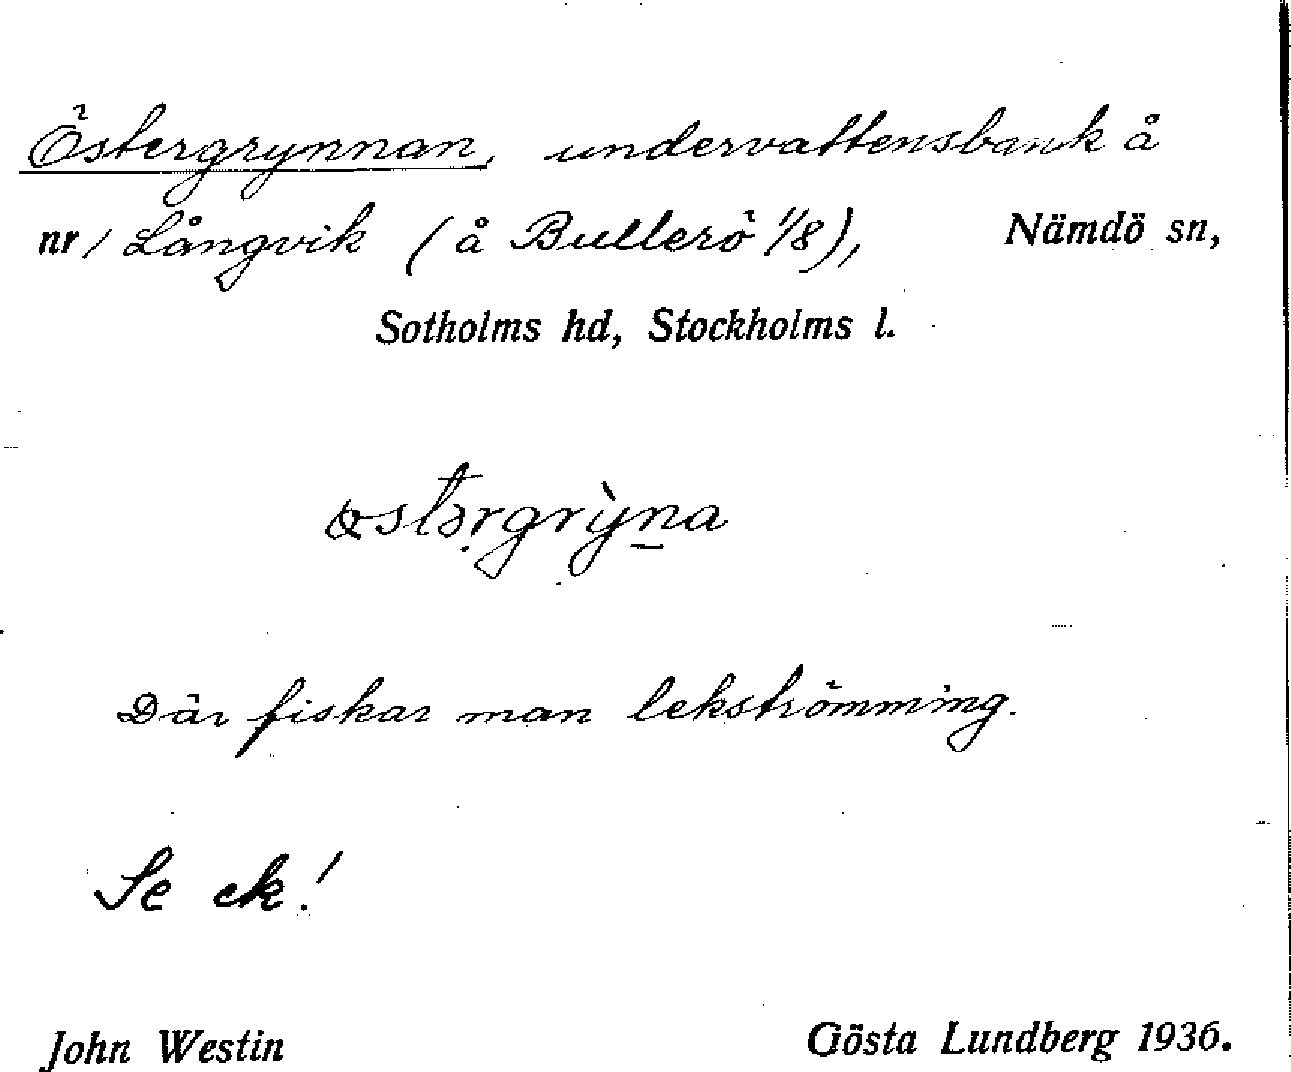 Östergrynnan, undervattensbank å
nr 1 Långvik (å Bullerö 1/8), Nämdö sn,
Sotholms hd, Stockholms l.
Där fiskar man lekströmming.
Se ek!
John Westin Gösta Lundberg 1936.